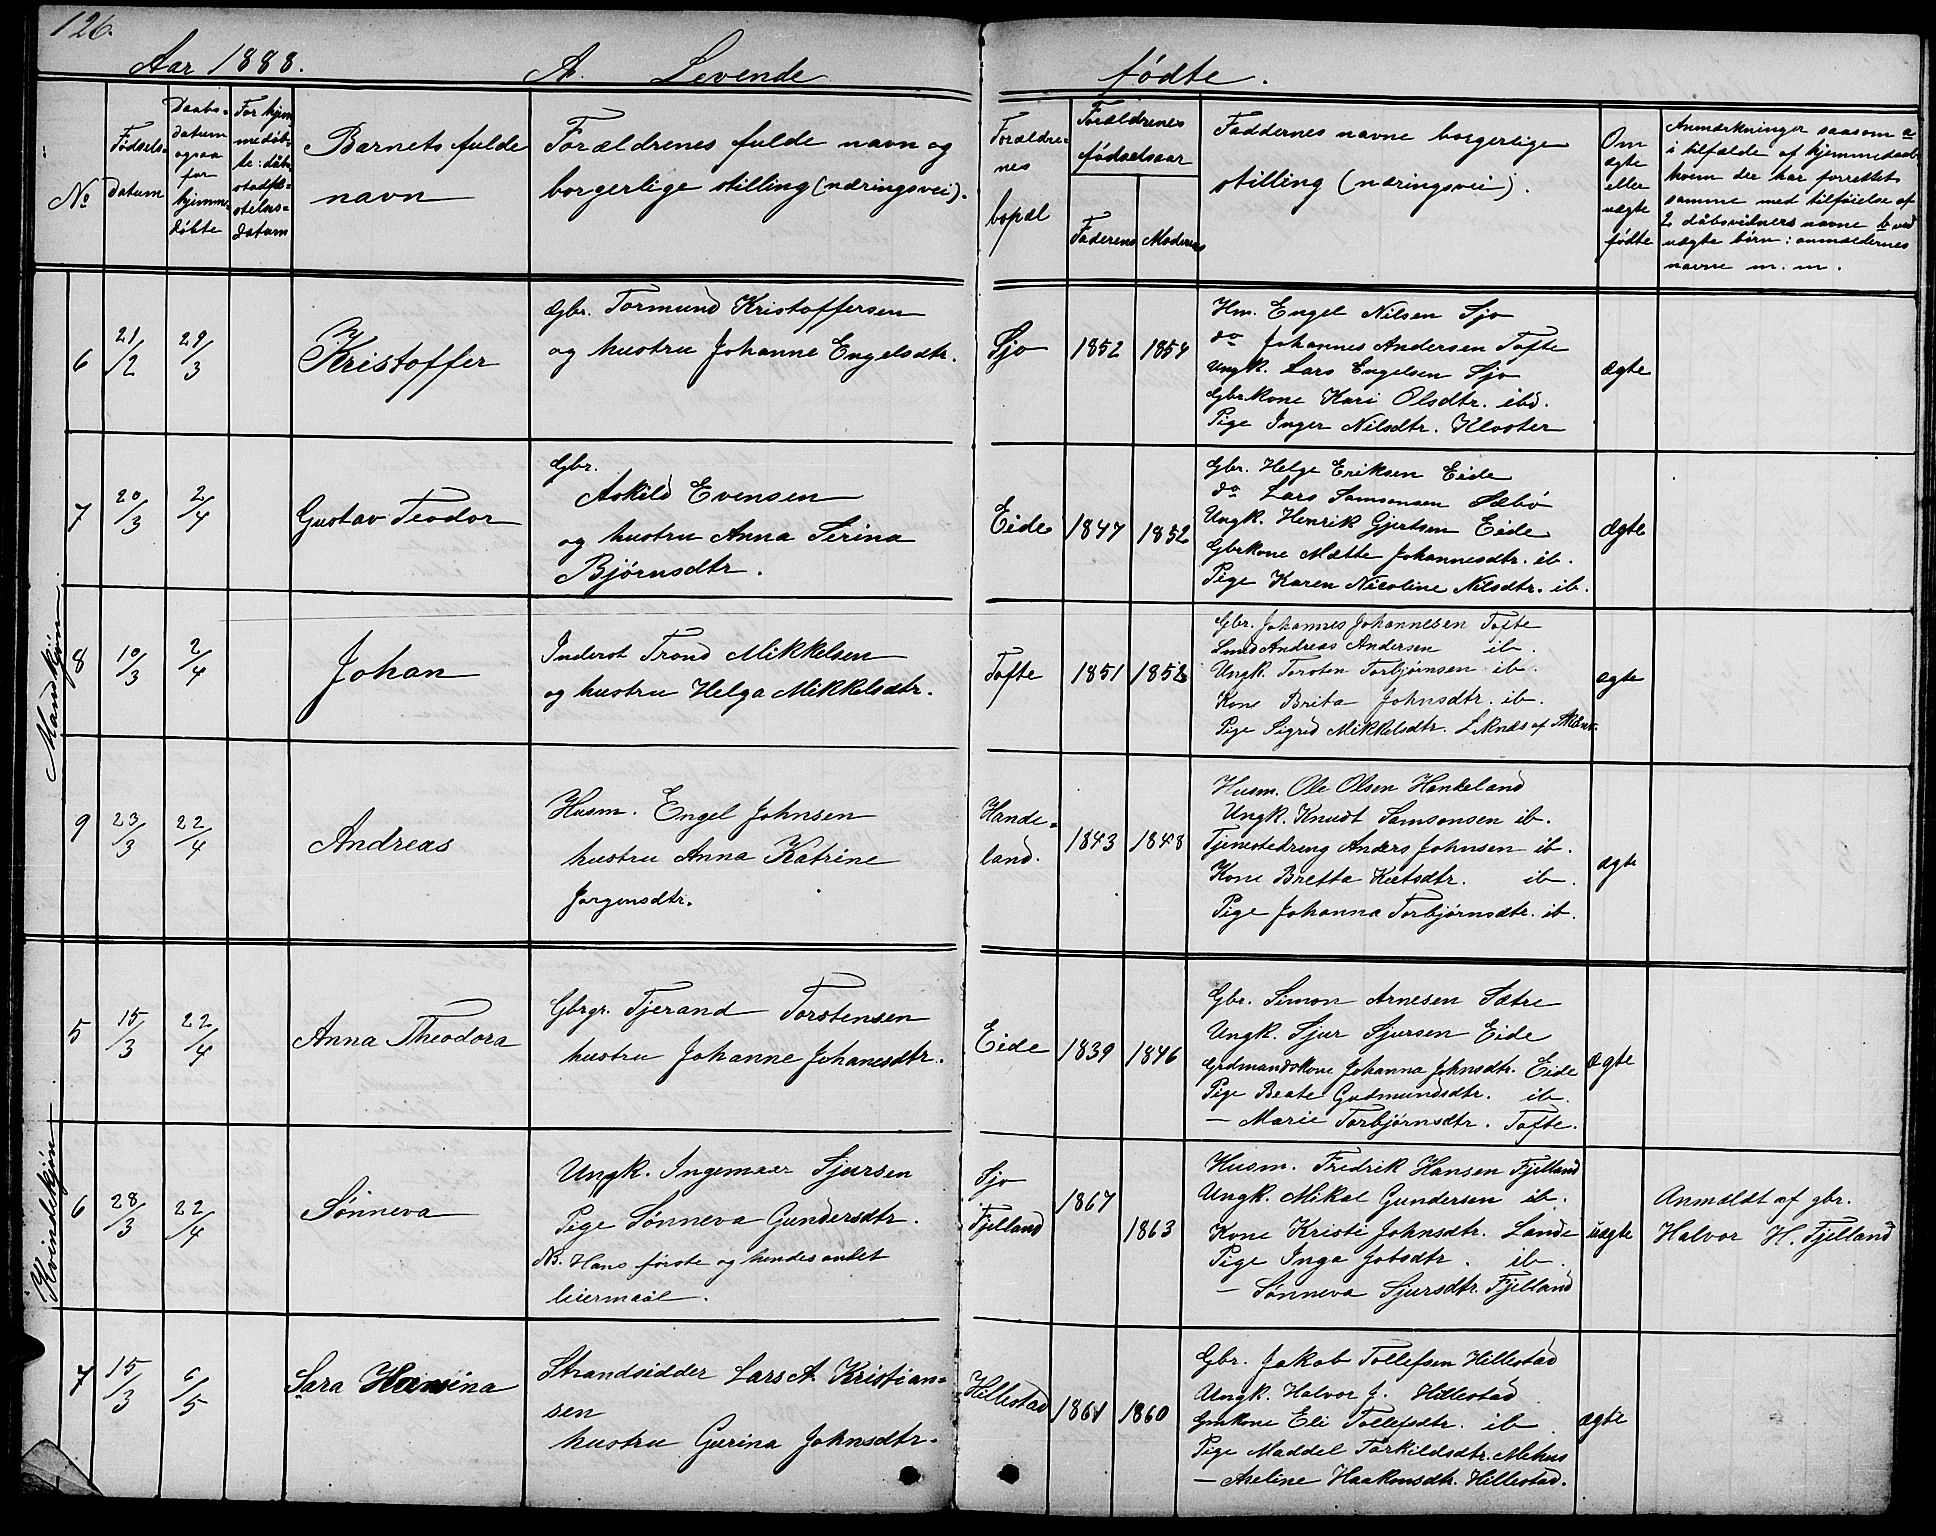 126.
Aar 1888. A. Levende fødte.
No
Fødsels-
datum
Daabs-
datum
ogsaa
for
hjemme-
døbte
For hjem-
medøb-
te: døbs
stadfæ-
stelses-
datum
Barnets fulde
navn
Forældrenes fulde navn og
borgerlige stilling (næringsvei).
Forældre-
nes
bopæl
Forældrenes
fødselsaar
Faderens Moderens
Faddernes navne borgerlige
stilling (næringsvei).
Om
ægte
eller
uægte
fødte
Anmærkninger saasom a
i tilfælde af hjemmedaab
hvem der har forrettet
samme med tilføielse af
2 dåbsvidners navne b ved
uægte børn: anmeldernes
navne m. m.
Mandkjøn
6 21/2 29/3 Kristoffer
Gbr. Tormund Kristoffersen
og hustru Johanne Engelsdtr.
Sjo 1852 1854
Hm. Engel Nilsen Sjo
do Johannes Andersen Tofte
Ungk. Lars Engelsen Sjo
Gbrkone Kari Olsdtr. ibd.
Pige Inger Nilsdtr. Kloster
ægte
7 20/3 2/4 Gustav Teodor
Gbr.
Askild Evensen
og hustru Anna Serina
Bjørnsdtr.
Eide 1847 1852
Gbr. Helge Eriksen Eide
do Lars Samsonsen Sæbø
Ungk. Henrik Gjertsen Eide
Gbrkone Mætte Johannesdtr. ib.
Pige Karen Nicoline Nilsdtr. ib.
ægte
8 10/3 2/4 Johan
Inderst Trond Mikkelsen
og hustru Helga Mikkelsdtr.
Tofte 1851 1852
Gbr. Johannes Johannesen Tofte
Smed Andreas Andersen ib
Ungk. Torsten Torbjørnsen ib.
Kone Brita Johnsdtr. ib.
Pige Sigrid Mikkelsdtr. Leknæs af
ægte
9 23/3 22/4 Andreas
Husm. Engel Johnsen
hustru Anna Katrine
Jørgensdtr.
Hande-
land. 1843 1848
Husm. Ole Olsen Handeland
Ungk. Knudt Samsonsen ib.
Tjenestedreng Anders Johnsen ib.
Kone Bretta Kætsdtr. ib.
Pige Johanna Torbjørnsdtr. ib.
ægte
Kvindekjøn
5 15/3 22/4 Anna Theodora
Gbrgr. Tjerand Torstensen
hustru Johanne Johanesdtr.
Eide 1839 1846
Gbr. Simon Arnesen Sætre
Ungk. Sjur Sjursen Eide
Grdmandskone Johanna Johnsdtr. Eide
Pige Beate Gudmundsdtr. ib.
— Marie Torbjørnsdtr. Tofte.
ægte
6 28/3 22/4 Sønneva
Ungk. Ingemaer Sjursen
Pige Sønneva Gundersdtr.
NB. Hans første og hendes andet
leiermaal.
Sjo
Fjelland 1867 1863
Husm. Fredrik Hansen Fjelland
Ungk. Mikal Gundersen ib.
Kone Kristi Johnsdtr. Lande
Pige Inga Jobsdtr. ib.
— Sønneva Sjursdtr. Fjelland
uægte
Anmældt af gbr.
Halvor H. Fjelland
7 15/3 6/5 Sara Hansina
Strandsidder Lars A. Kristian-
sen
hustru Gurina Johnsdtr.
Hillestad 1861 1860
Gbr. Jakob Tollefsen Hillestad
Ungk. Halvor J. Hillestad
Gmkone Eli Tollefsdtr. ib
Pige Maddel Torkildsdtr. Mehus
— Aseline Haakonsdtr. Hillestad.
ægte